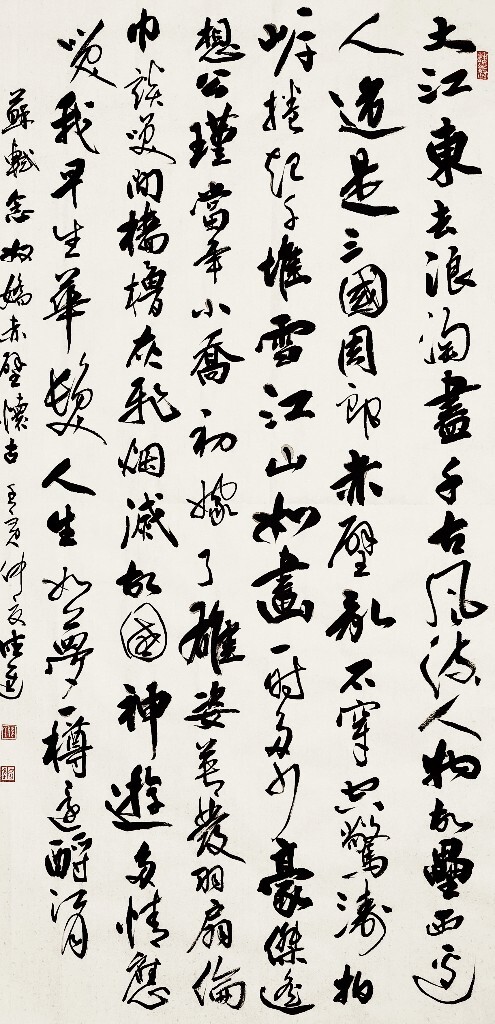 大江東去浪淘盡千古風流人物故壘西邊
人道是三國周郎赤壁亂石穿空驚濤拍
岸捲起千堆雪江山如畫一時多少豪傑遙
想公瑾當年小喬初嫁了雄姿英發羽扇綸
巾談笑間檣櫓灰飛烟滅故國神遊多情應
笑我早生華髮人生如夢一樽還酹江月
蘇軾念奴嬌赤壁懷古 壬寅仲夏